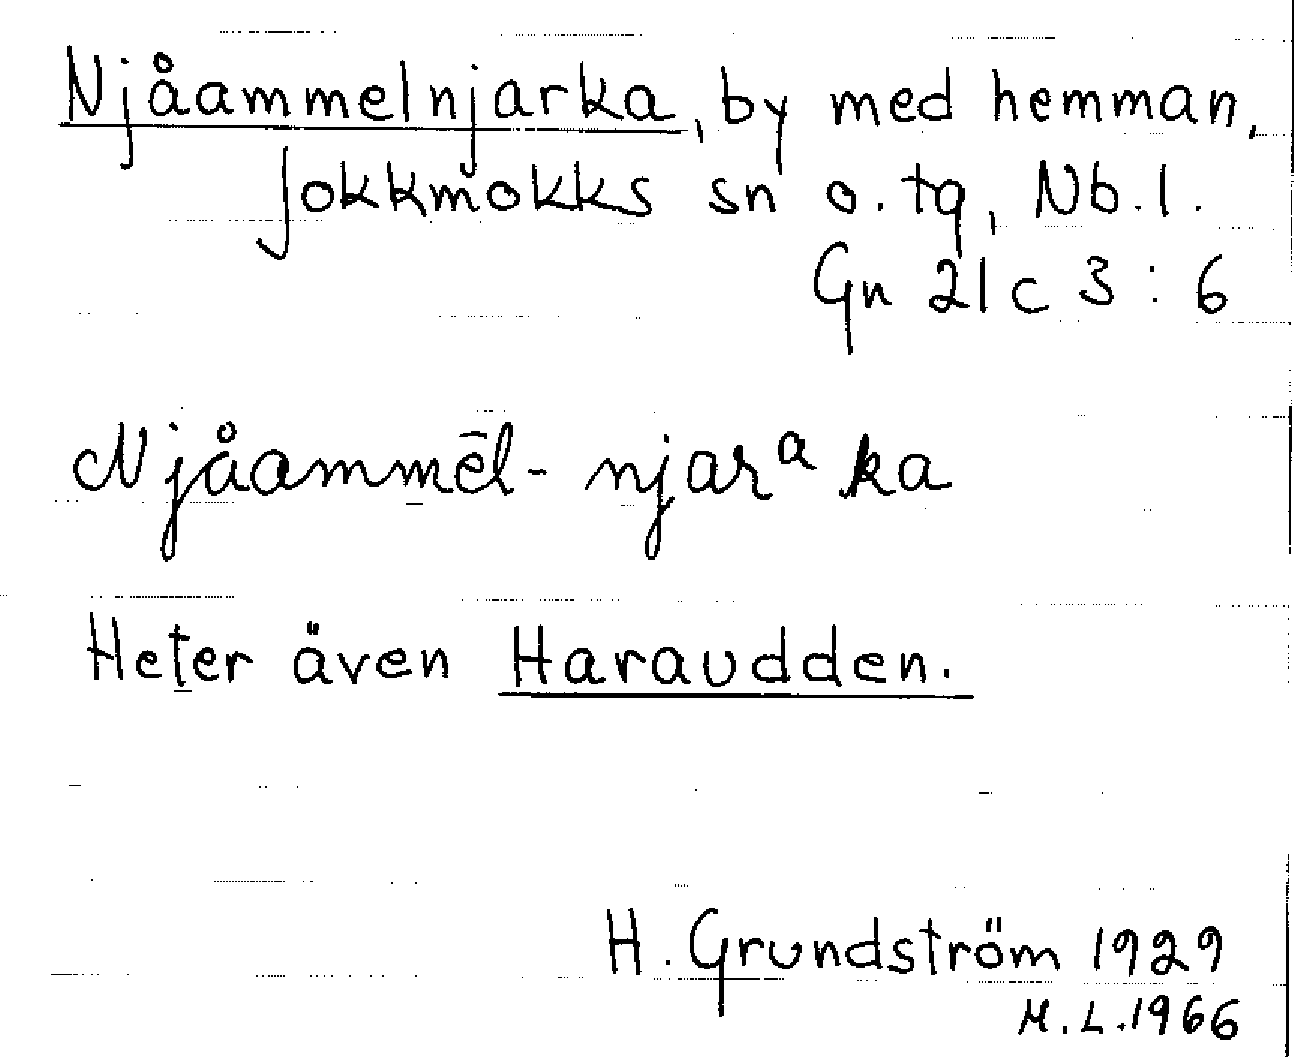 Njåammelnjarka, by med hemman,
Jokkmokks sn o. tg, Nb. l.
Gn 21 c 3 : 6
Njåammēl- njarᵃka
Heter även Haraudden.
H. Grundström 1929
M.L. 1966